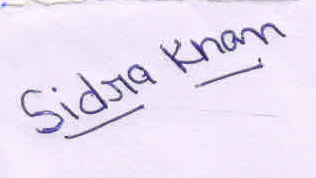 Sidra Khan